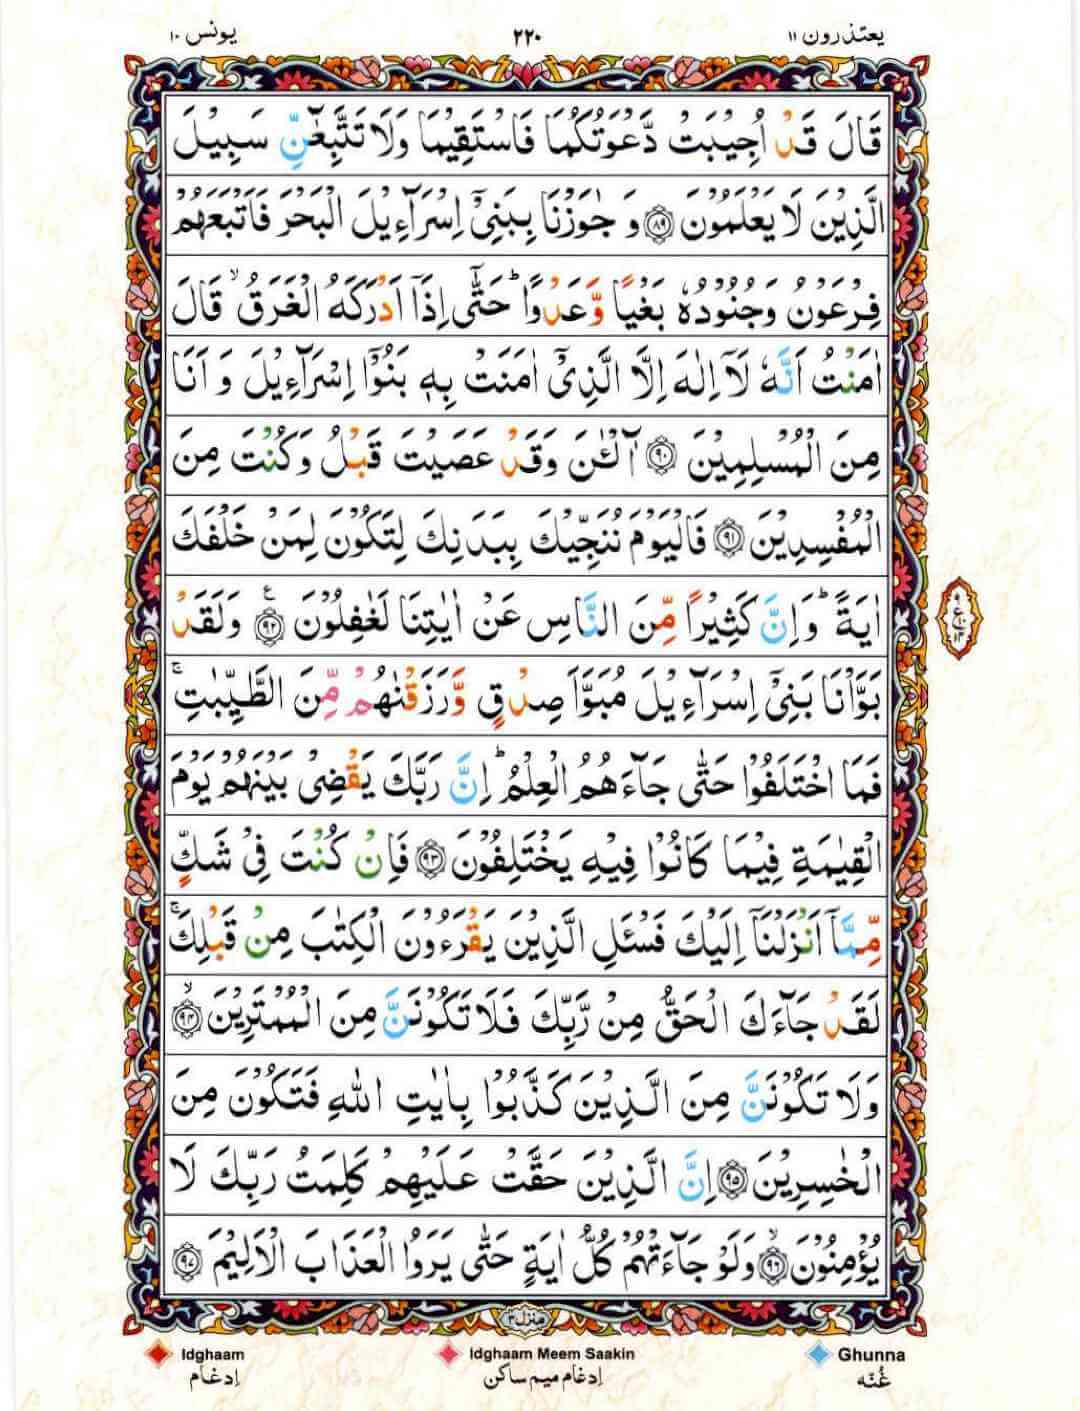 يعتذرون ١١ ٢٢٠ يونس ١٠
قَالَ قَدْ اُجِيْبَتْ دَّعْوَتُكُمَا فَاسْتَقِيْمَا وَلَا تَتَّبِعٰٓنِّ سَبِيْلَ
الَّذِيْنَ لَا يَعْلَمُوْنَ ﴿٨٩﴾ وَ جٰوَزْنَا بِبَنِىْٓ اِسْرَآءِيْلَ الْبَحْرَ فَاَتْبَعَهُمْ
فِرْعَوْنُ وَجُنُوْدُهٗ بَغْيًا وَّعَدْوًا ؕ حَتّٰٓى اِذَاۤ اَدْرَكَهُ الْغَرَقُ ۙ قَالَ
اٰمَنْتُ اَنَّهٗ لَاۤ اِلٰهَ اِلَّا الَّذِىْٓ اٰمَنَتْ بِهٖ بَنُوْۤا اِسْرَآءِيْلَ وَ اَنَا
مِنَ الْمُسْلِمِيْنَ ﴿٩٠﴾ آٰلْـٰٔنَ وَقَدْ عَصَيْتَ قَبْلُ وَكُنْتَ مِنَ
الْمُفْسِدِيْنَ ﴿٩١﴾ فَالْيَوْمَ نُنَجِّيْكَ بِبَدَنِكَ لِتَكُوْنَ لِمَنْ خَلْفَكَ
اٰيَةً ؕ وَاِنَّ كَثِيْرًا مِّنَ النَّاسِ عَنْ اٰيٰتِنَا لَغٰفِلُوْنَ ﴿٩٢﴾ وَلَقَدْ
بَوَّاْنَا بَنِىْٓ اِسْرَآءِيْلَ مُبَوَّاَ صِدْقٍ وَّرَزَقْنٰهُمْ مِّنَ الطَّيِّبٰتِ ۚ
فَمَا اخْتَلَفُوْا حَتّٰى جَآءَهُمُ الْعِلْمُ ؕ اِنَّ رَبَّكَ يَقْضِىْ بَيْنَهُمْ يَوْمَ
الْقِيٰمَةِ فِيْمَا كَانُوْا فِيْهِ يَخْتَلِفُوْنَ ﴿٩٣﴾ فَاِنْ كُنْتَ فِىْ شَكٍّ
مِّمَّاۤ اَنْزَلْنَاۤ اِلَيْكَ فَسْـَٔلِ الَّذِيْنَ يَقْرَءُوْنَ الْكِتٰبَ مِنْ قَبْلِكَ ۚ
لَقَدْ جَآءَكَ الْحَقُّ مِنْ رَّبِّكَ فَلَا تَكُوْنَنَّ مِنَ الْمُمْتَرِيْنَ ﴿٩٤﴾ ۙ
وَلَا تَكُوْنَنَّ مِنَ الَّذِيْنَ كَذَّبُوْا بِاٰيٰتِ اللّٰهِ فَتَكُوْنَ مِنَ
الْخٰسِرِيْنَ ﴿٩٥﴾ اِنَّ الَّذِيْنَ حَقَّتْ عَلَيْهِمْ كَلِمَتُ رَبِّكَ لَا
يُؤْمِنُوْنَ ﴿٩٦﴾ ۙ وَلَوْ جَآءَتْهُمْ كُلُّ اٰيَةٍ حَتّٰى يَرَوُا الْعَذَابَ الْاَلِيْمَ ﴿٩٧﴾
منزل ٣
Idghaam Idghaam Meem Saakin Ghunna
اِدغام اِدغام میم ساکن غُنّه